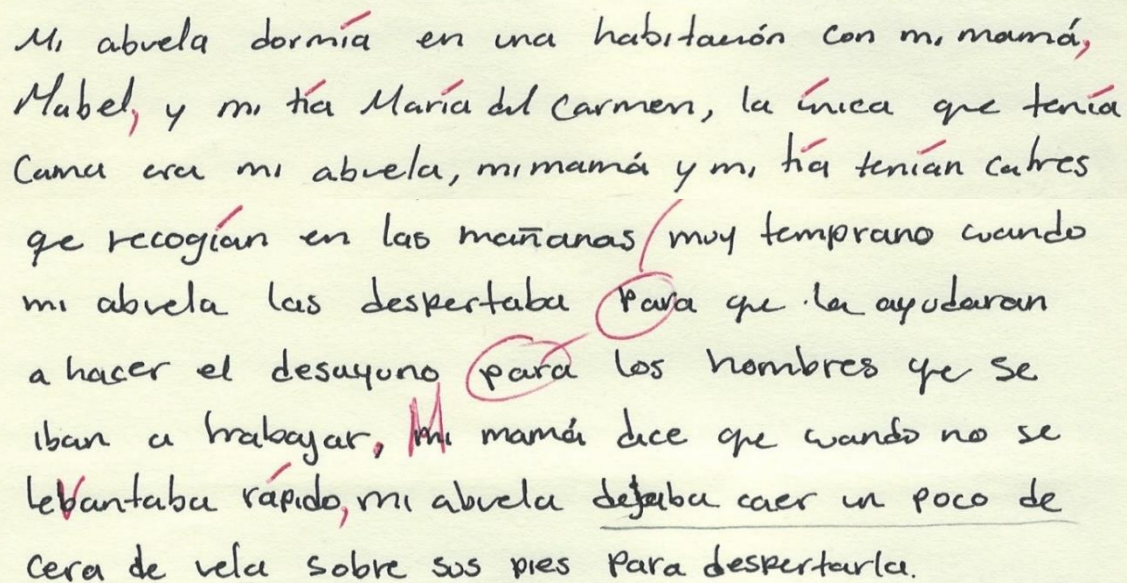 Mi abuela dormía en una habitación con mi mamá,
Mabel, y mi tía María del Carmen, la única que tenía
Cama era mi abuela, mi mamá y mi tía tenían catres
qe recogían en las mañanas muy temprano cuando
mi abuela las despertaba para que la ayudaran
a hacer el desayuno para los hombres qe se
iban a trabajar, Mi mamá dice que cuando no se
levantaba rápido, mi abuela dejaba caer un poco de
cera de vela sobre sus pies para despertarla.